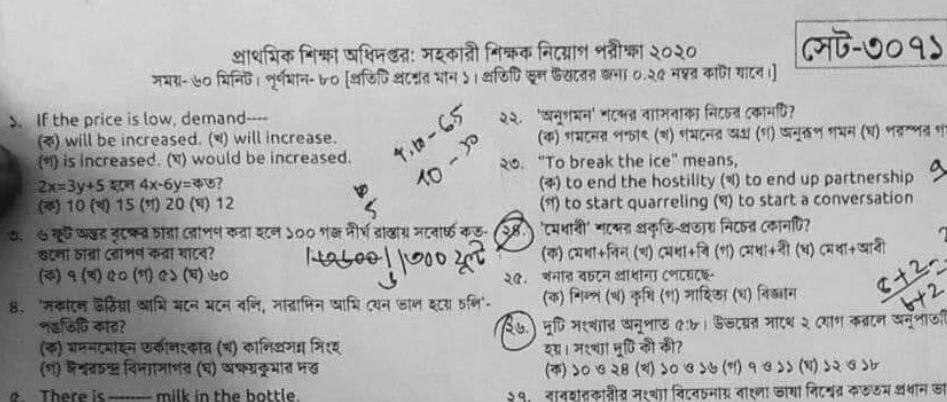 প্রাথমিক শিক্ষা অধিদপ্তর: সহকারী শিক্ষক নিয়োগ পরীক্ষা ২০২০
সেট-৩০৭১
সময়- ৬০ মিনিট। পূর্ণমান- ৮০ [প্রতিটি প্রশ্নের মান ১। প্রতিটি ভুল উত্তরের জন্য ০.২৫ নম্বর কাটা যাবে।]
১. If the price is low, demand----
(ক) will be increased. (খ) will increase.
(গ) is increased. (ঘ) would be increased.
2x=3y+5 হলে 4x-6y=কত?
(ক) 10 (খ) 15 (গ) 20 (ঘ) 12
৩. ৬ ফুট অন্তর বৃক্ষের চারা রোপণ করা হলে ১০০ গজ দীর্ঘ রাস্তায় সর্বোচ্চ কত-
গুলো চারা রোপণ করা যাবে?
(ক) ৭ (খ) ৫০ (গ) ৫১ (ঘ) ৬০
৪. 'সকালে উঠিয়া আমি মনে মনে বলি, সারাদিন আমি যেন ভাল হয়ে চলি'-
পঙক্তিটি কার?
(ক) মদনমোহন তর্কালংকার (খ) কালিপ্রসন্ন সিংহ
(গ) ঈশ্বরচন্দ্র বিদ্যাসাগর (ঘ) অক্ষয়কুমার দত্ত
৫. There is ------- milk in the bottle.
4.10 - 65
10 - 30
300 ফুট
২২. 'অনুগমন' শব্দের ব্যাসবাক্য নিচের কোনটি?
(ক) গমনের পশ্চাৎ (খ) গমনের অগ্র (গ) অনুরূপ গমন (ঘ) পরস্পর
২৩. "To break the ice" means,
(ক) to end the hostility (খ) to end up partnership
(গ) to start quarreling (ঘ) to start a conversation
২৪. 'মেধাবী' শব্দের প্রকৃতি-প্রত্যয় নিচের কোনটি?
(ক) মেধা+বিন (খ) মেধা+বি (গ) মেধা+বী (ঘ) মেধা+আবী
২৫. খনার বচনে প্রাধান্য পেয়েছে-
(ক) শিল্প (খ) কৃষি (গ) সাহিত্য (ঘ) বিজ্ঞান
২৬. দুটি সংখ্যার অনুপাত ৫:৮। উভয়ের সাথে ২ যোগ করলে অনুপাতটি
হয়। সংখ্যা দুটি কী কী?
(ক) ১০ ও ২৪ (খ) ১০ ও ১৬ (গ) ৭ ও ১১ (ঘ) ১২ ও ১৮
২৭. ব্যবহারকারীর সংখ্যা বিবেচনায় বাংলা ভাষা বিশ্বের কততম প্রধান